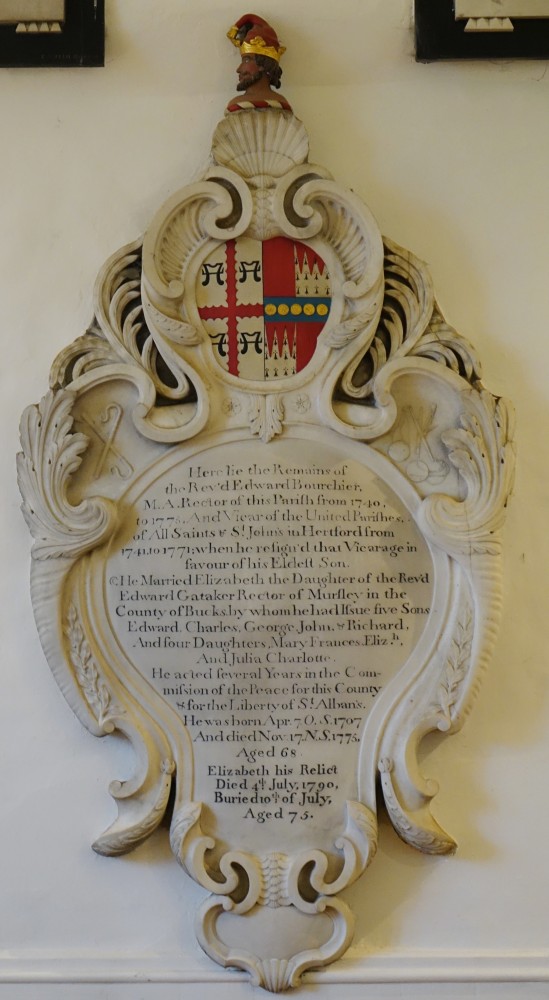 Here lie the Remains of
the Rev'd Edward Bourchier,
M.A. Rector of this Parish from 1740,
to 1775, And Vicar of the United Parishes,
of All Saints & St. John's in Hertford from
1741, to 1771; when he resign'd that Vicarage in
favour of his Eldest Son.
He Married Elizabeth the Daughter of the Rev'd
Edward Gataker Rector of Mursley in the
County of Bucks, by whom he had Issue five Sons
Edward, Charles, George, John, & Richard,
And four Daughters, Mary, Frances, Eliz.h,
And Julia Charlotte.
He acted several Years in the Com-
mission of the Peace for this County
& for the Liberty of St. Alban's.
He was born Apr. 7, O.S. 1707
And died Nov. 17, N.S. 1775,
Aged 68.
Elizabeth his Relict
Died 4th July, 1790,
Buried 10th of July,
Aged 75.